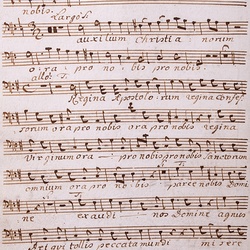 nobis. Largo
auxilium Christia norum
ora pro no bis pro nobis
allo: T.
Regina Apostolo rum regina Confes
sorum ora pro nobis ora pro nobis regina
Virginum ora pro nobis pro nobis Sanctorum
omnium ora pro no bis parce nobis Dom
ne ex au di nos Domine agnus
Dei qui tollis peccata mundi mi sere